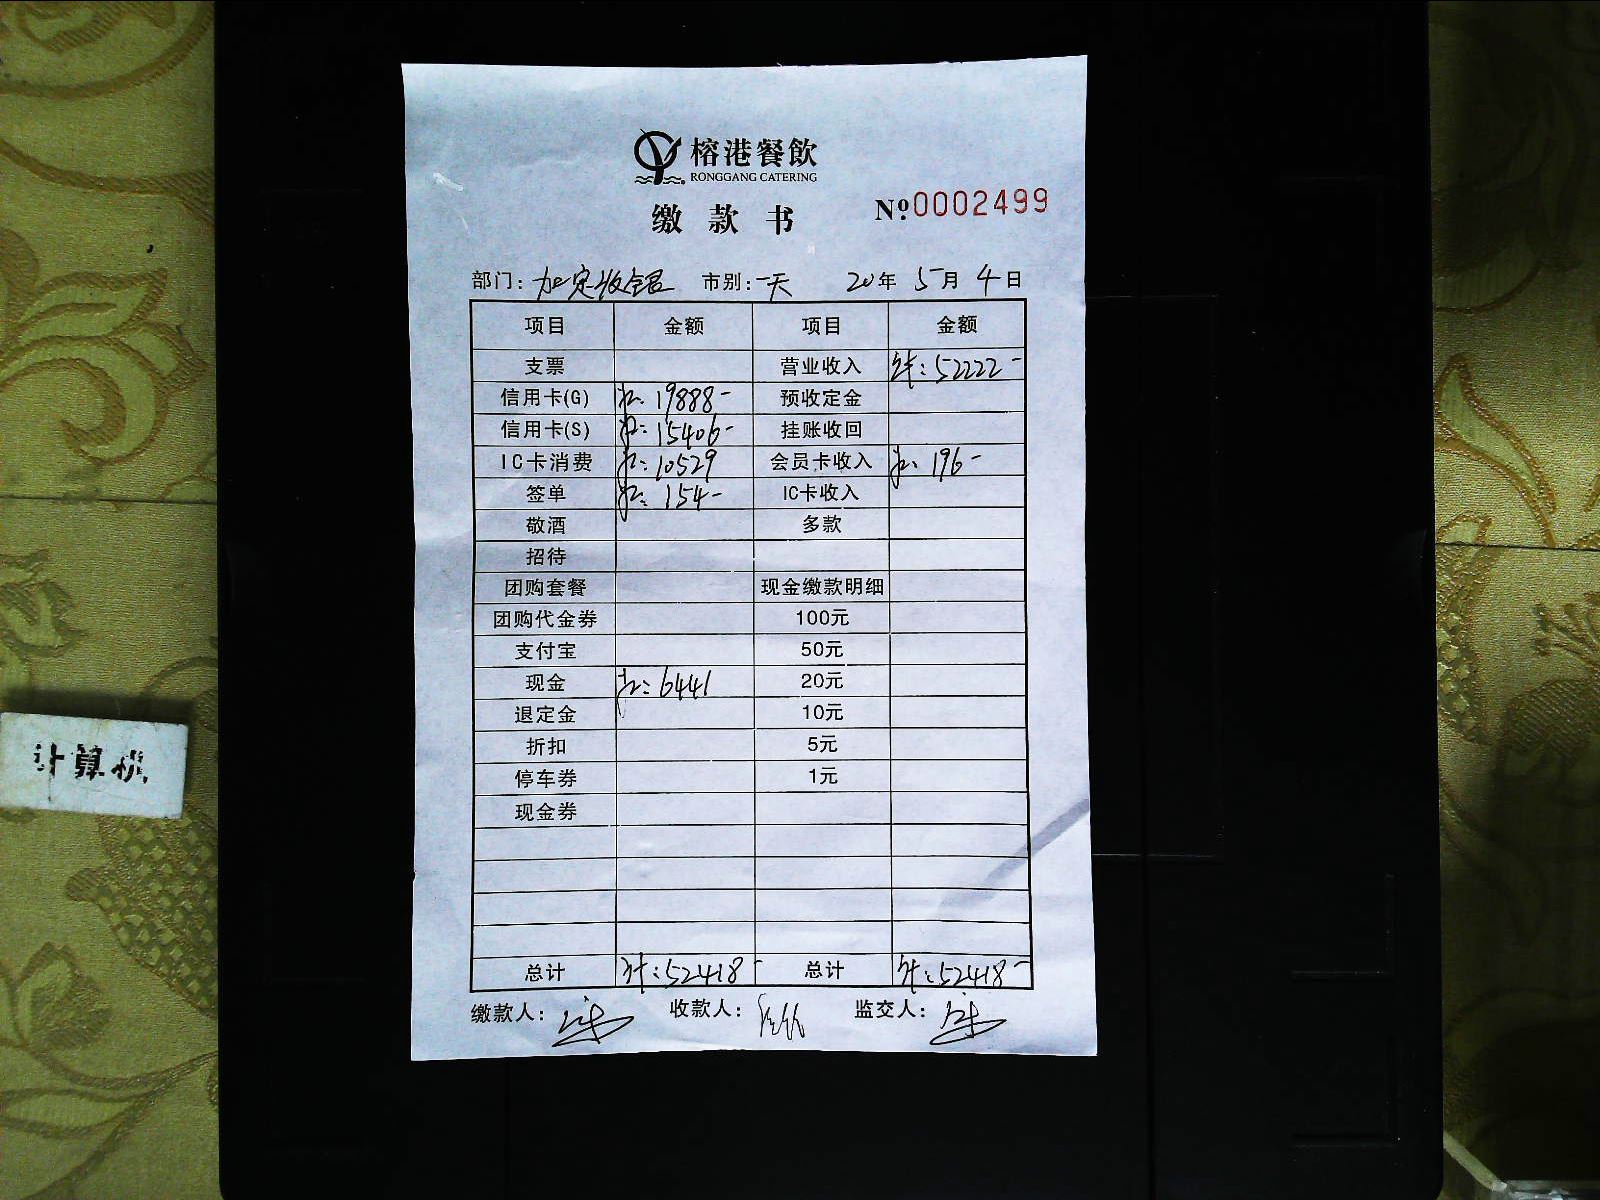 榕港餐飲
RONGGANG CATERING
缴款书 Nº 0002499
部门: 加定收银 市别: 一天 20年 5月 4日
项目 金额 项目 金额
支票 营业收入 52222-
信用卡(G) 19888- 预收定金
信用卡(S) 15406- 挂账收回
IC卡消费 10529 会员卡收入 196-
签单 154- IC卡收入
敬酒 多款
招待
团购套餐 现金缴款明细
团购代金券 100元
支付宝 50元
现金 6441 20元
退定金 10元
折扣 5元
停车券 1元
现金券
总计 52418- 总计 52418-
缴款人: 收款人: 监交人:
计算机